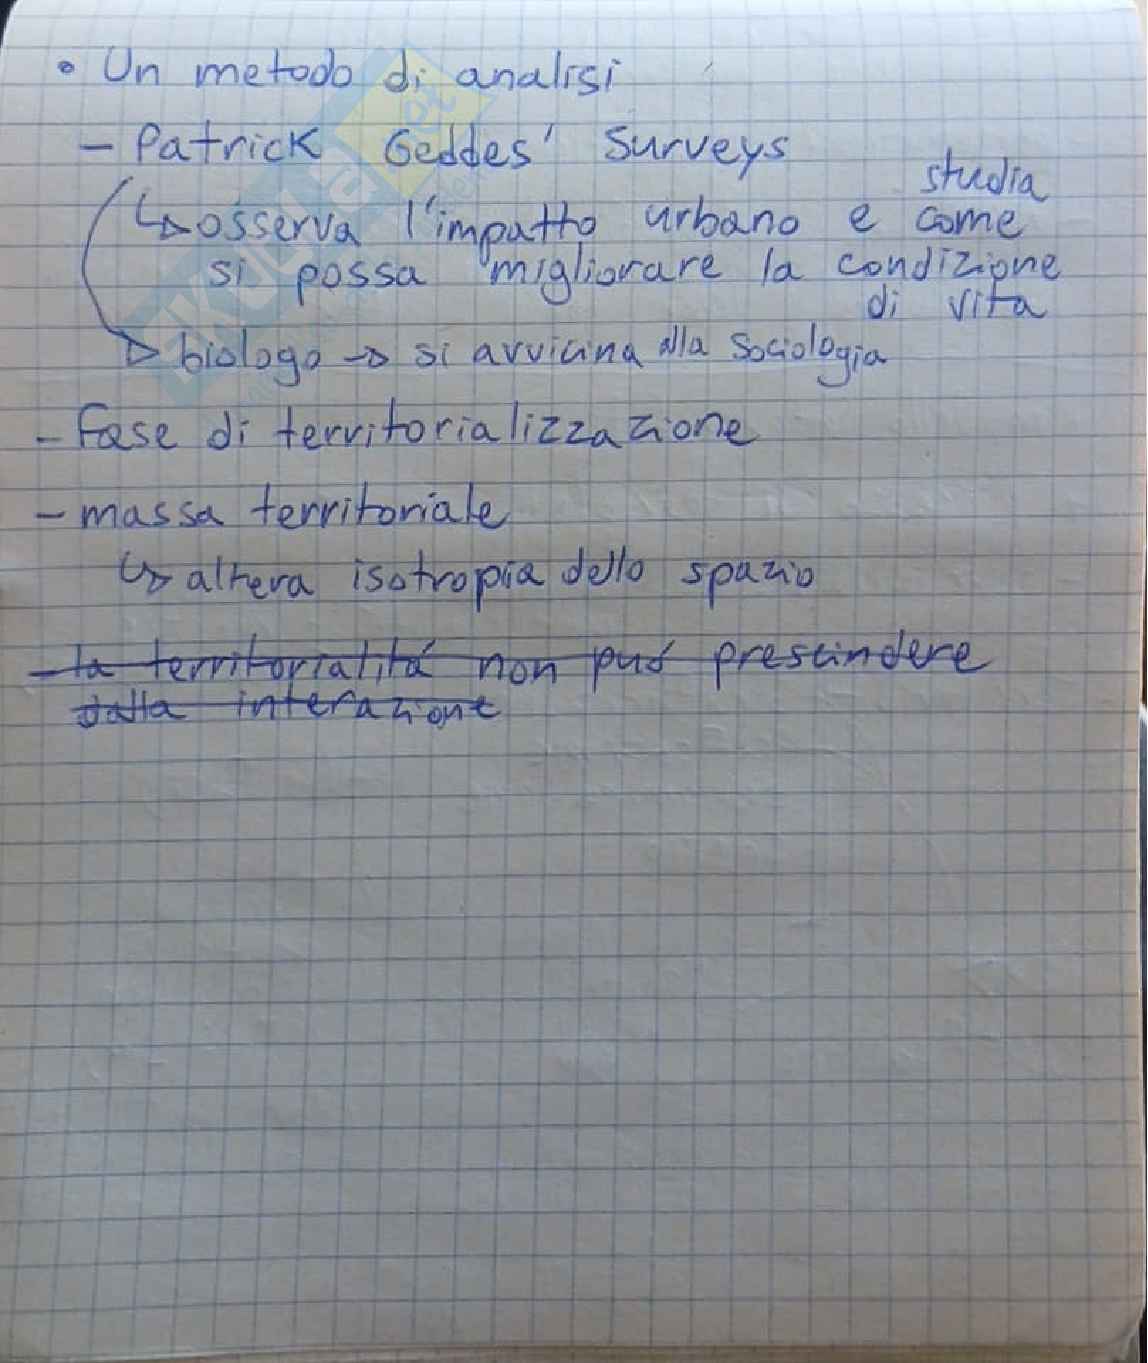 • Un metodo di analisi
- Patrick Geddes' Surveys
studia
↳ osserva l'impatto urbano e come
si possa migliorare la condizione
di vita
▷ biologo → si avvicina alla Sociologia
- Fase di territorializzazione
- massa territoriale
↳ altera isotropia dello spazio
- la territorialitá non puó prescindere
dalla interazione